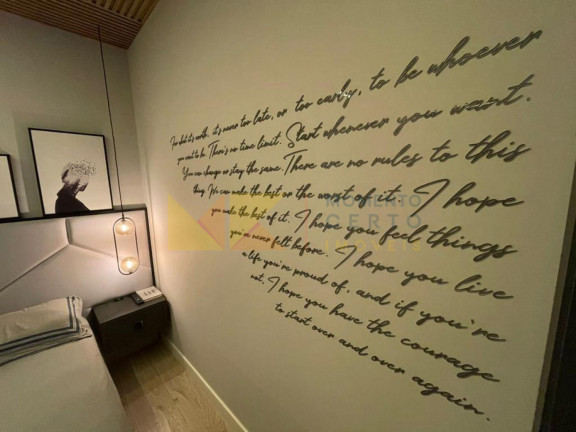 For what it's worth: it's never too late, or too early, to be whoever
you want to be. There's no time limit. Start whenever you want.
You can change or stay the same. There are no rules to this
thing. We can make the best or the worst of it. I hope
you make the best of it. I hope you feel things
you've never felt before. I hope you live
a life you're proud of, and if you're
not, I hope you have the courage
to start over and over again.
MOMENTO
CERTO
IMÓVEIS